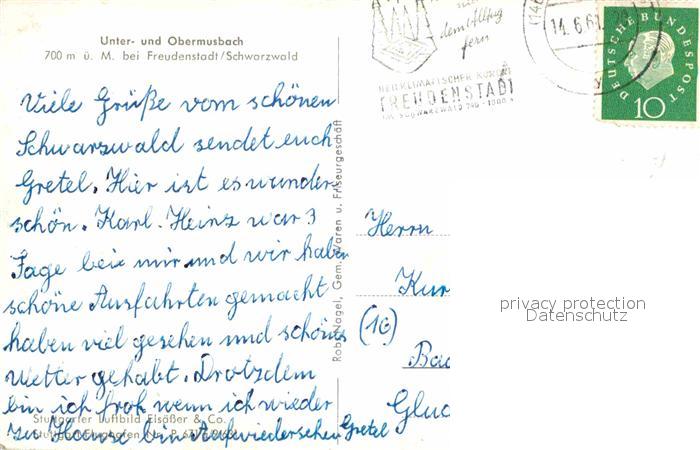 Unter- und Obermusbach
700 m ü. M. bei Freudenstadt/Schwarzwald
Viele Grüße vom schönen
Schwarzwald sendet euch
Gretel. Hier ist es wunder-
schön. Karl-Heinz war 3
Tage bei mir und wir haben
schöne Ausfahrten gemacht
haben viel gesehen und schönes
Wetter gehabt. Drotzdem
bin ich froh wenn ich wieder
zu Hause bin Aufwiedersehen Gretel
Stuttgarter Luftbild Elsäßer & Co.
Stuttgart-Flughafen Nr. P
Rob. Nagel, Gem. Waren u. Friseurgeschäft
dem Alltag
fern
HEILKLIMATISCHER KURORT
FREUDENSTADT
IM SCHWARZWALD 740-1000 m
14.6.61
DEUTSCHE BUNDESPOST
10
Herrn
Kur
(16)
Bad
Gluc
privacy protection
Datenschutz